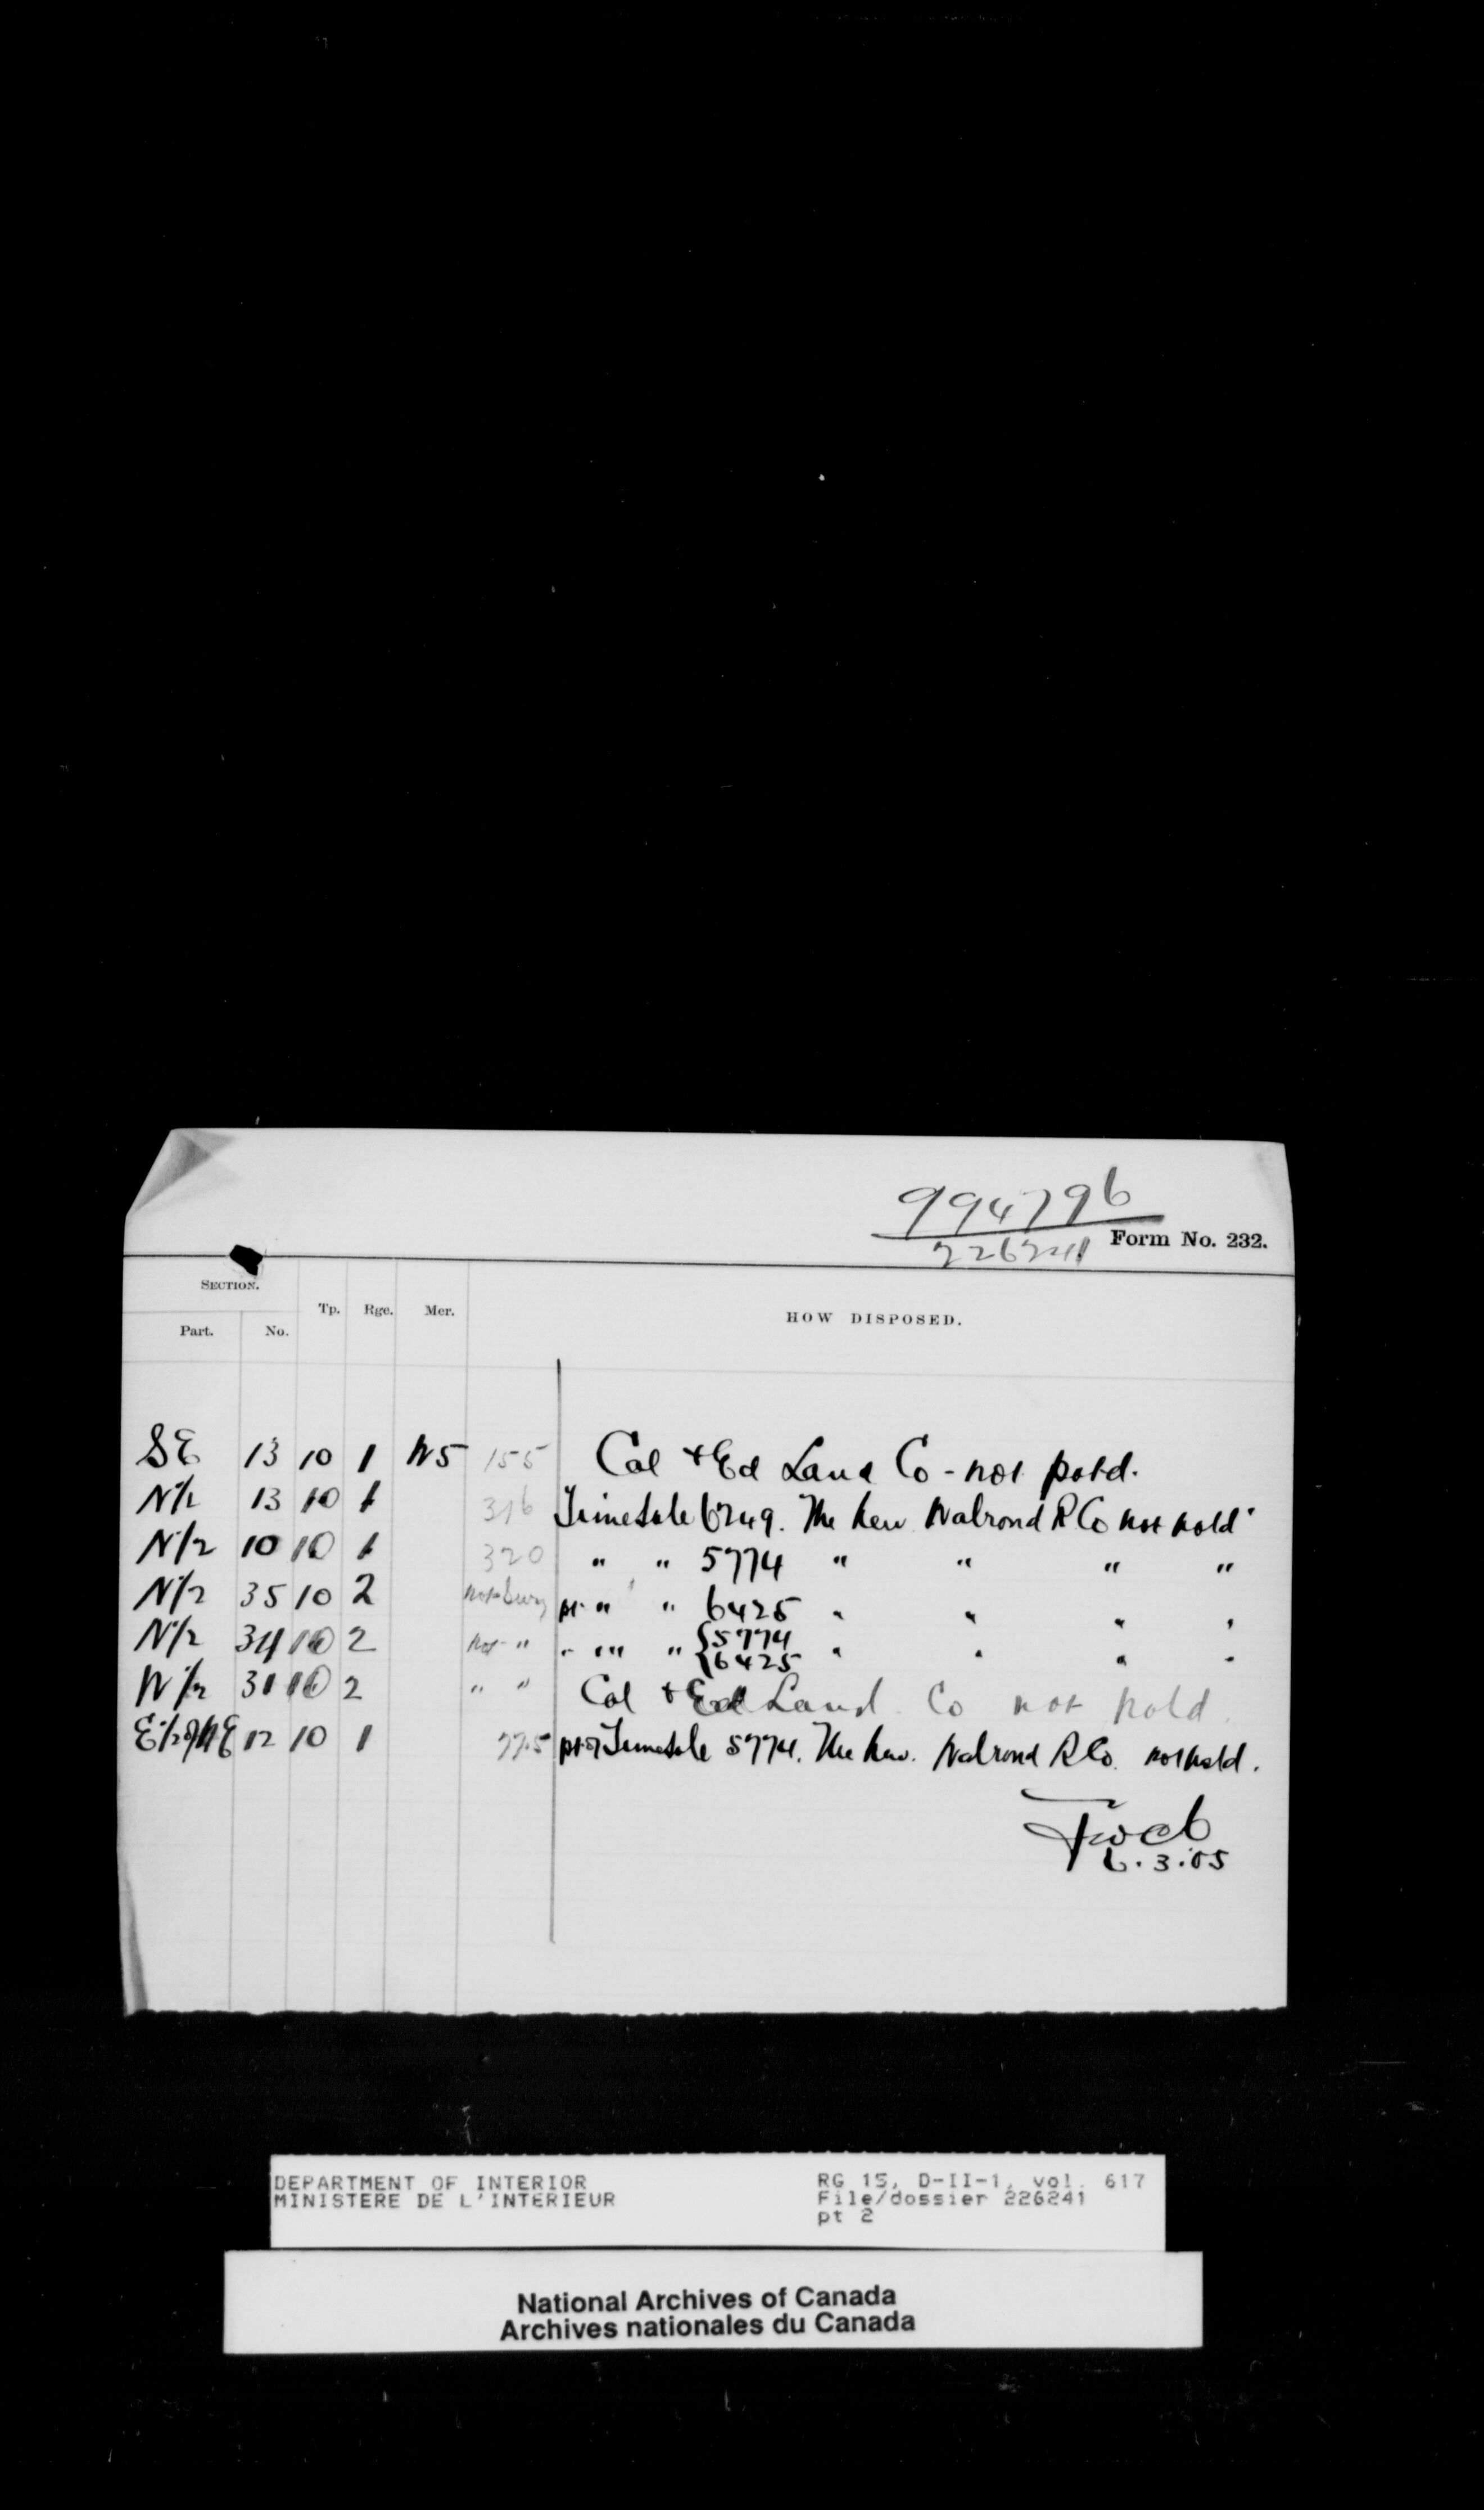 994796
226241 Form No. 232.
SECTION. Tp. Rge. Mer. HOW DISPOSED.
Part. No.
SE 13 10 1 W5 155 Cal & Ed Land Co - not patd.
N/2 13 10 1 316 Timesale 6249. The New Walrond R Co not patd
N/2 10 10 1 320 " " 5774 " " " "
N/2 35 10 2 not surv pt. " " 6425 " " " "
N/2 34 10 2 not " " " " {5774 " " " "
{6425
W/2 31 10 2 " " Cal & Ed Land Co not patd.
E1/2 of NE 12 10 1 77.5 pt of Timesale 5774. The New. Walrond R Co. not patd.
6.3.05
DEPARTMENT OF INTERIOR RG 15, D-II-1, vol. 617
MINISTERE DE L'INTERIEUR File/dossier 226241
pt 2
National Archives of Canada
Archives nationales du Canada